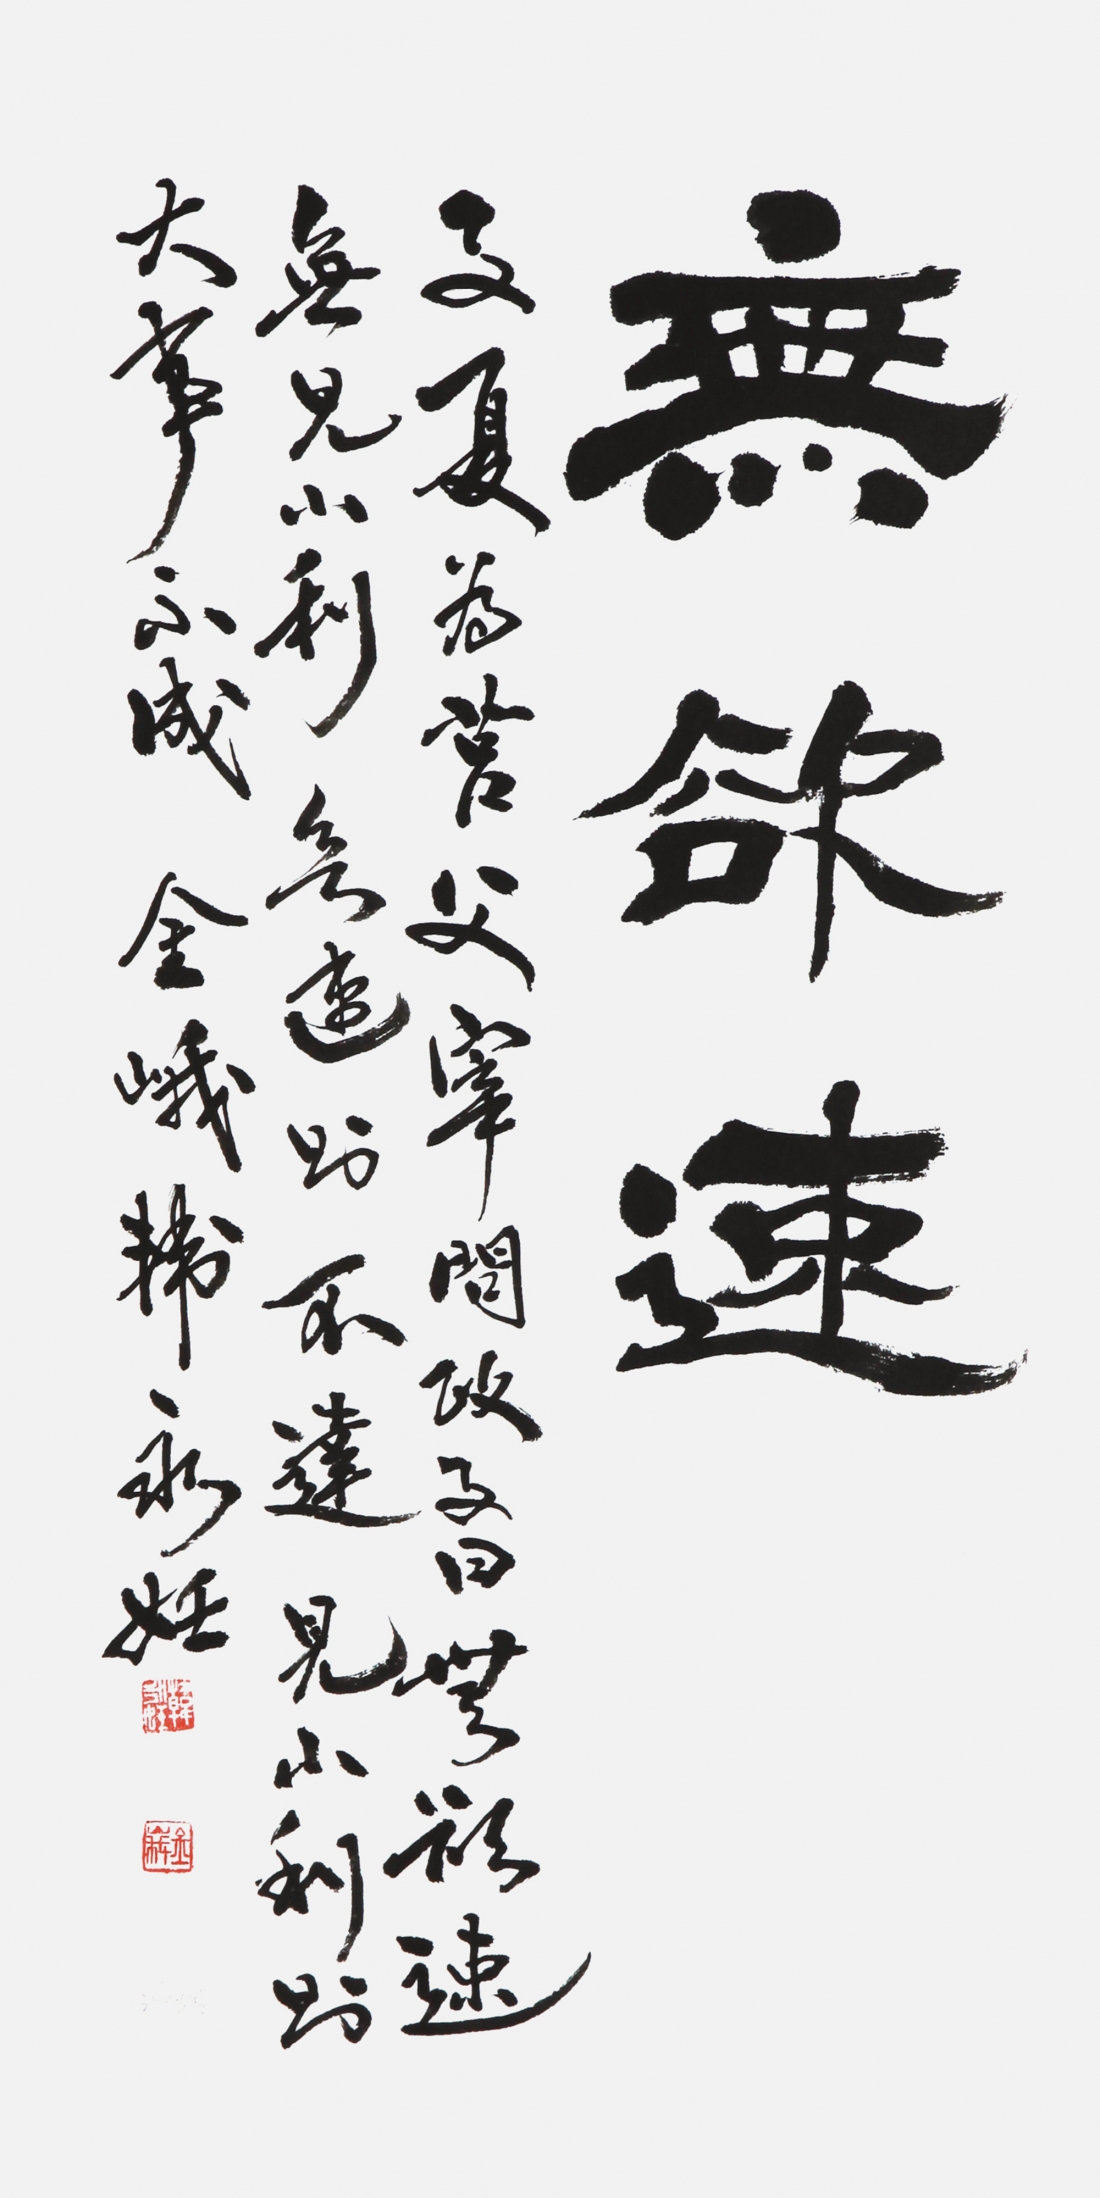 無欲速
子夏為莒父宰問政子曰無欲速
無見小利欲速則不達見小利則
大事不成 金峨韓永姙